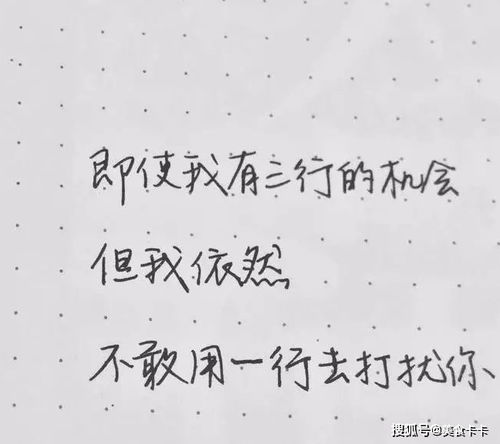 即使我有三行的机会
但我依然
不敢用一行去打扰你、
搜狐号@美食卡卡